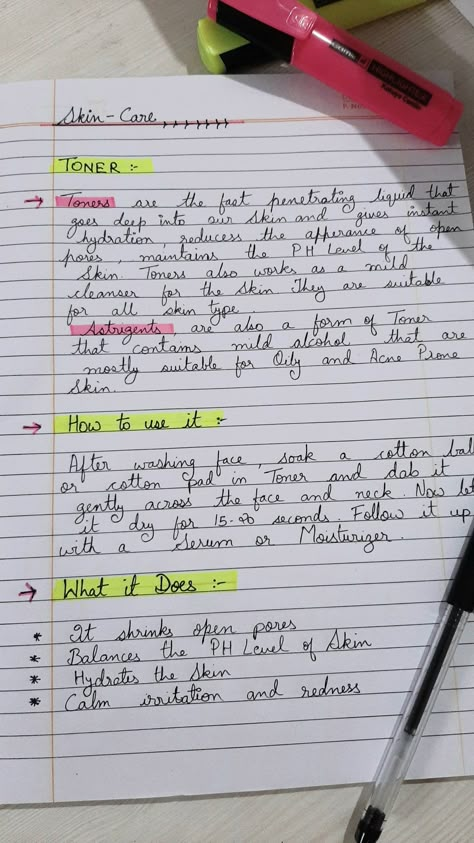 Skin-Care
TONER :-
→ Toners are the fast penetrating liquid that
goes deep into our skin and gives instant
hydration, reducess the apperance of open
pores, maintains the PH Level of the
Skin. Toners also works as a mild
cleanser for the skin They are suitable
for all skin type.
Astrigents are also a form of Toner
that contains mild alcohol that are
mostly suitable for Oily and Acne Prone
Skin.
→ How to use it :-
After washing face, soak a cotton ball
or cotton pad in Toner and dab it
gently across the face and neck. Now let
it dry for 15-20 seconds. Follow it up
with a Serum or Moisturizer.
→ What it Does :-
* It shrinks open pores
* Balances the PH Level of Skin
* Hydrates the Skin
* Calm irritation and redness